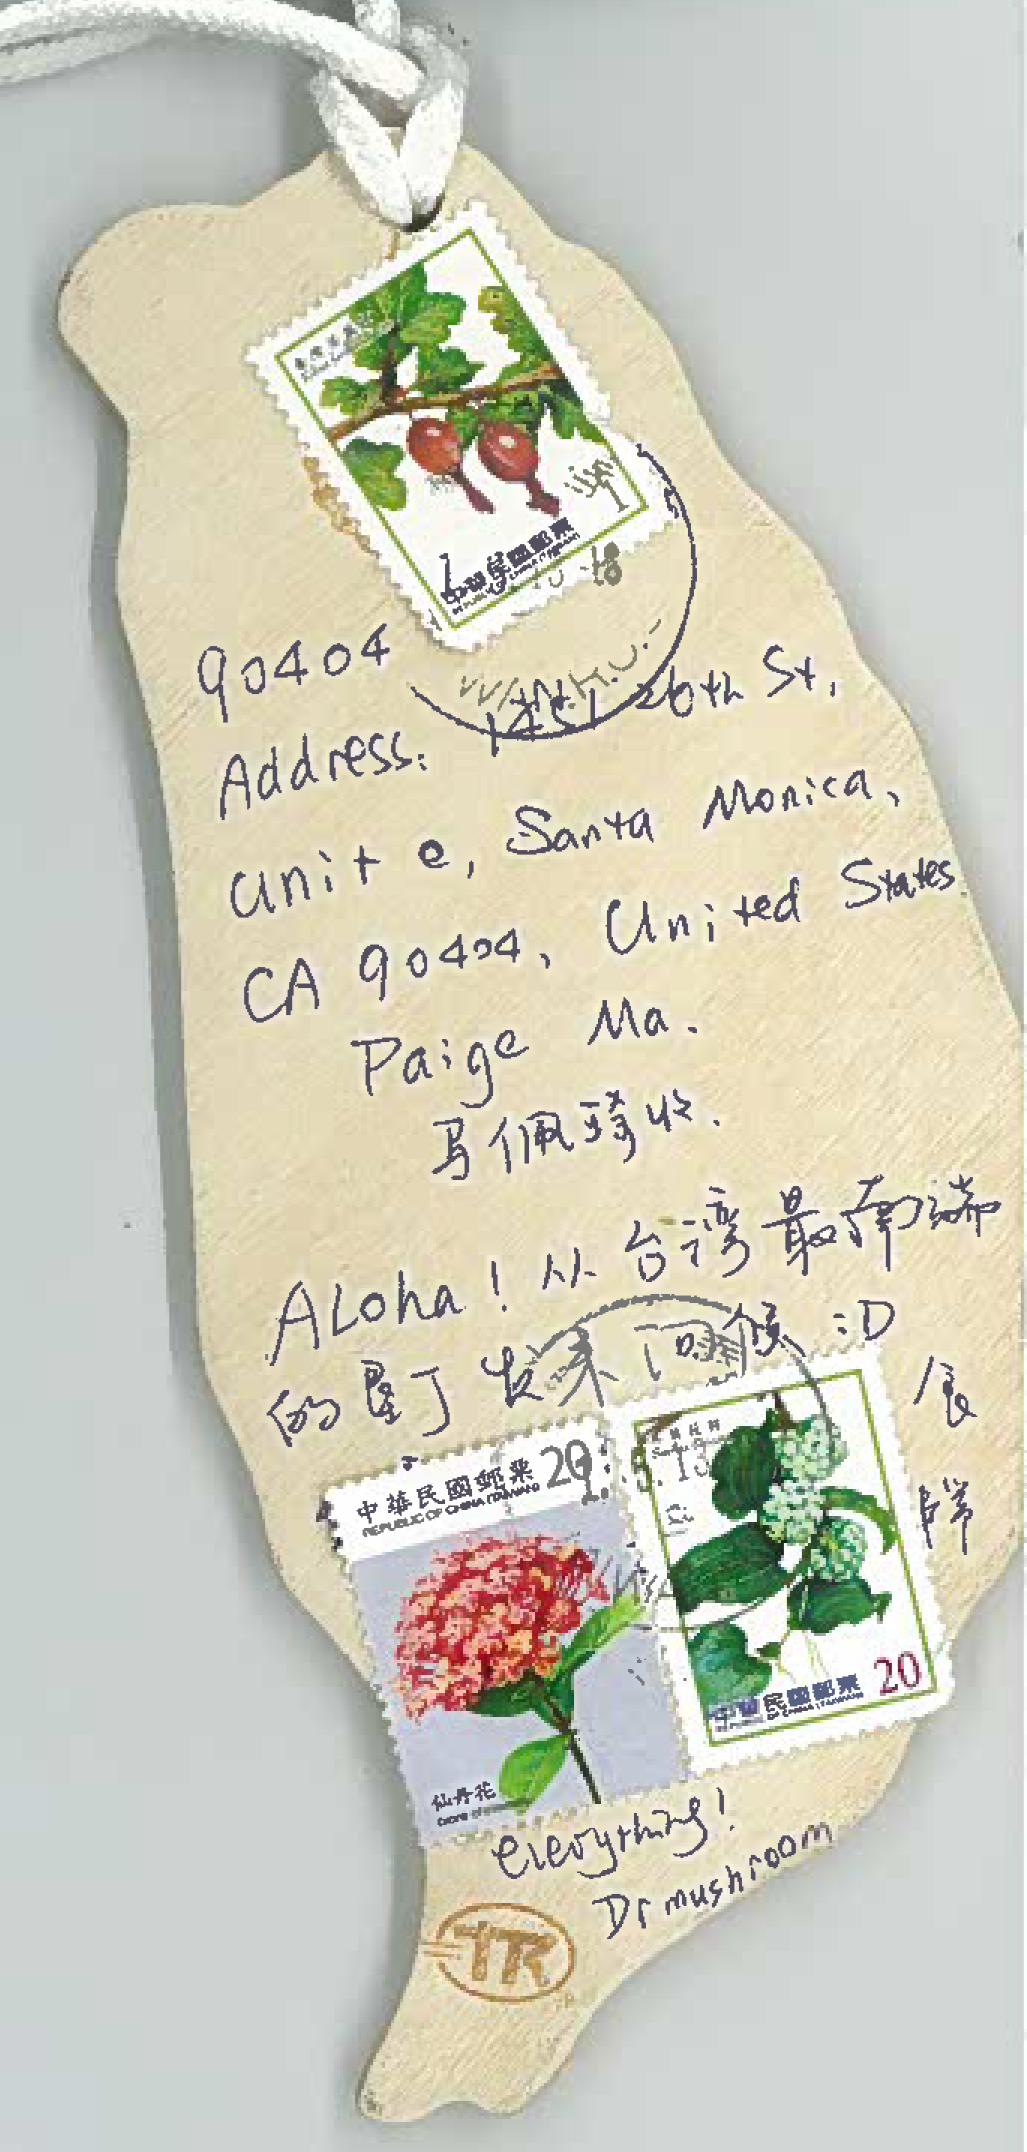 中華民國郵票
90404
Address: 1451 20th St,
Unit e, Santa Monica,
CA 90404, United States
Paige Ma.
马佩琦收.
ALoha! 从台湾最南端
的垦丁发来问候 :D
中華民國郵票 20
REPUBLIC OF CHINA (TAIWAN)
仙丹花
中華民國郵票 20
REPUBLIC OF CHINA (TAIWAN)
everything!
Dr mushroom
TR